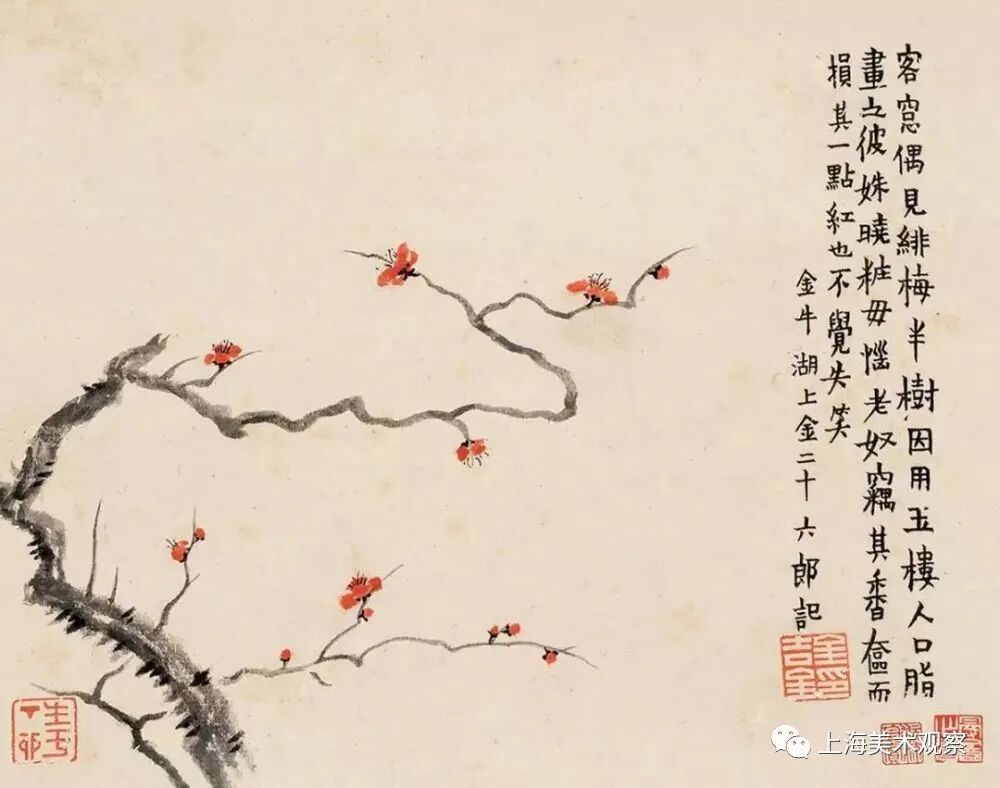 客窓偶見緋梅半樹因用玉樓人口脂
畫之彼姝曉粧毋惱老奴竊其香奩而
損其一點紅也不覺失笑
金牛湖上金二十六郎記
金吉金印
生于丁卯
上海美术观察